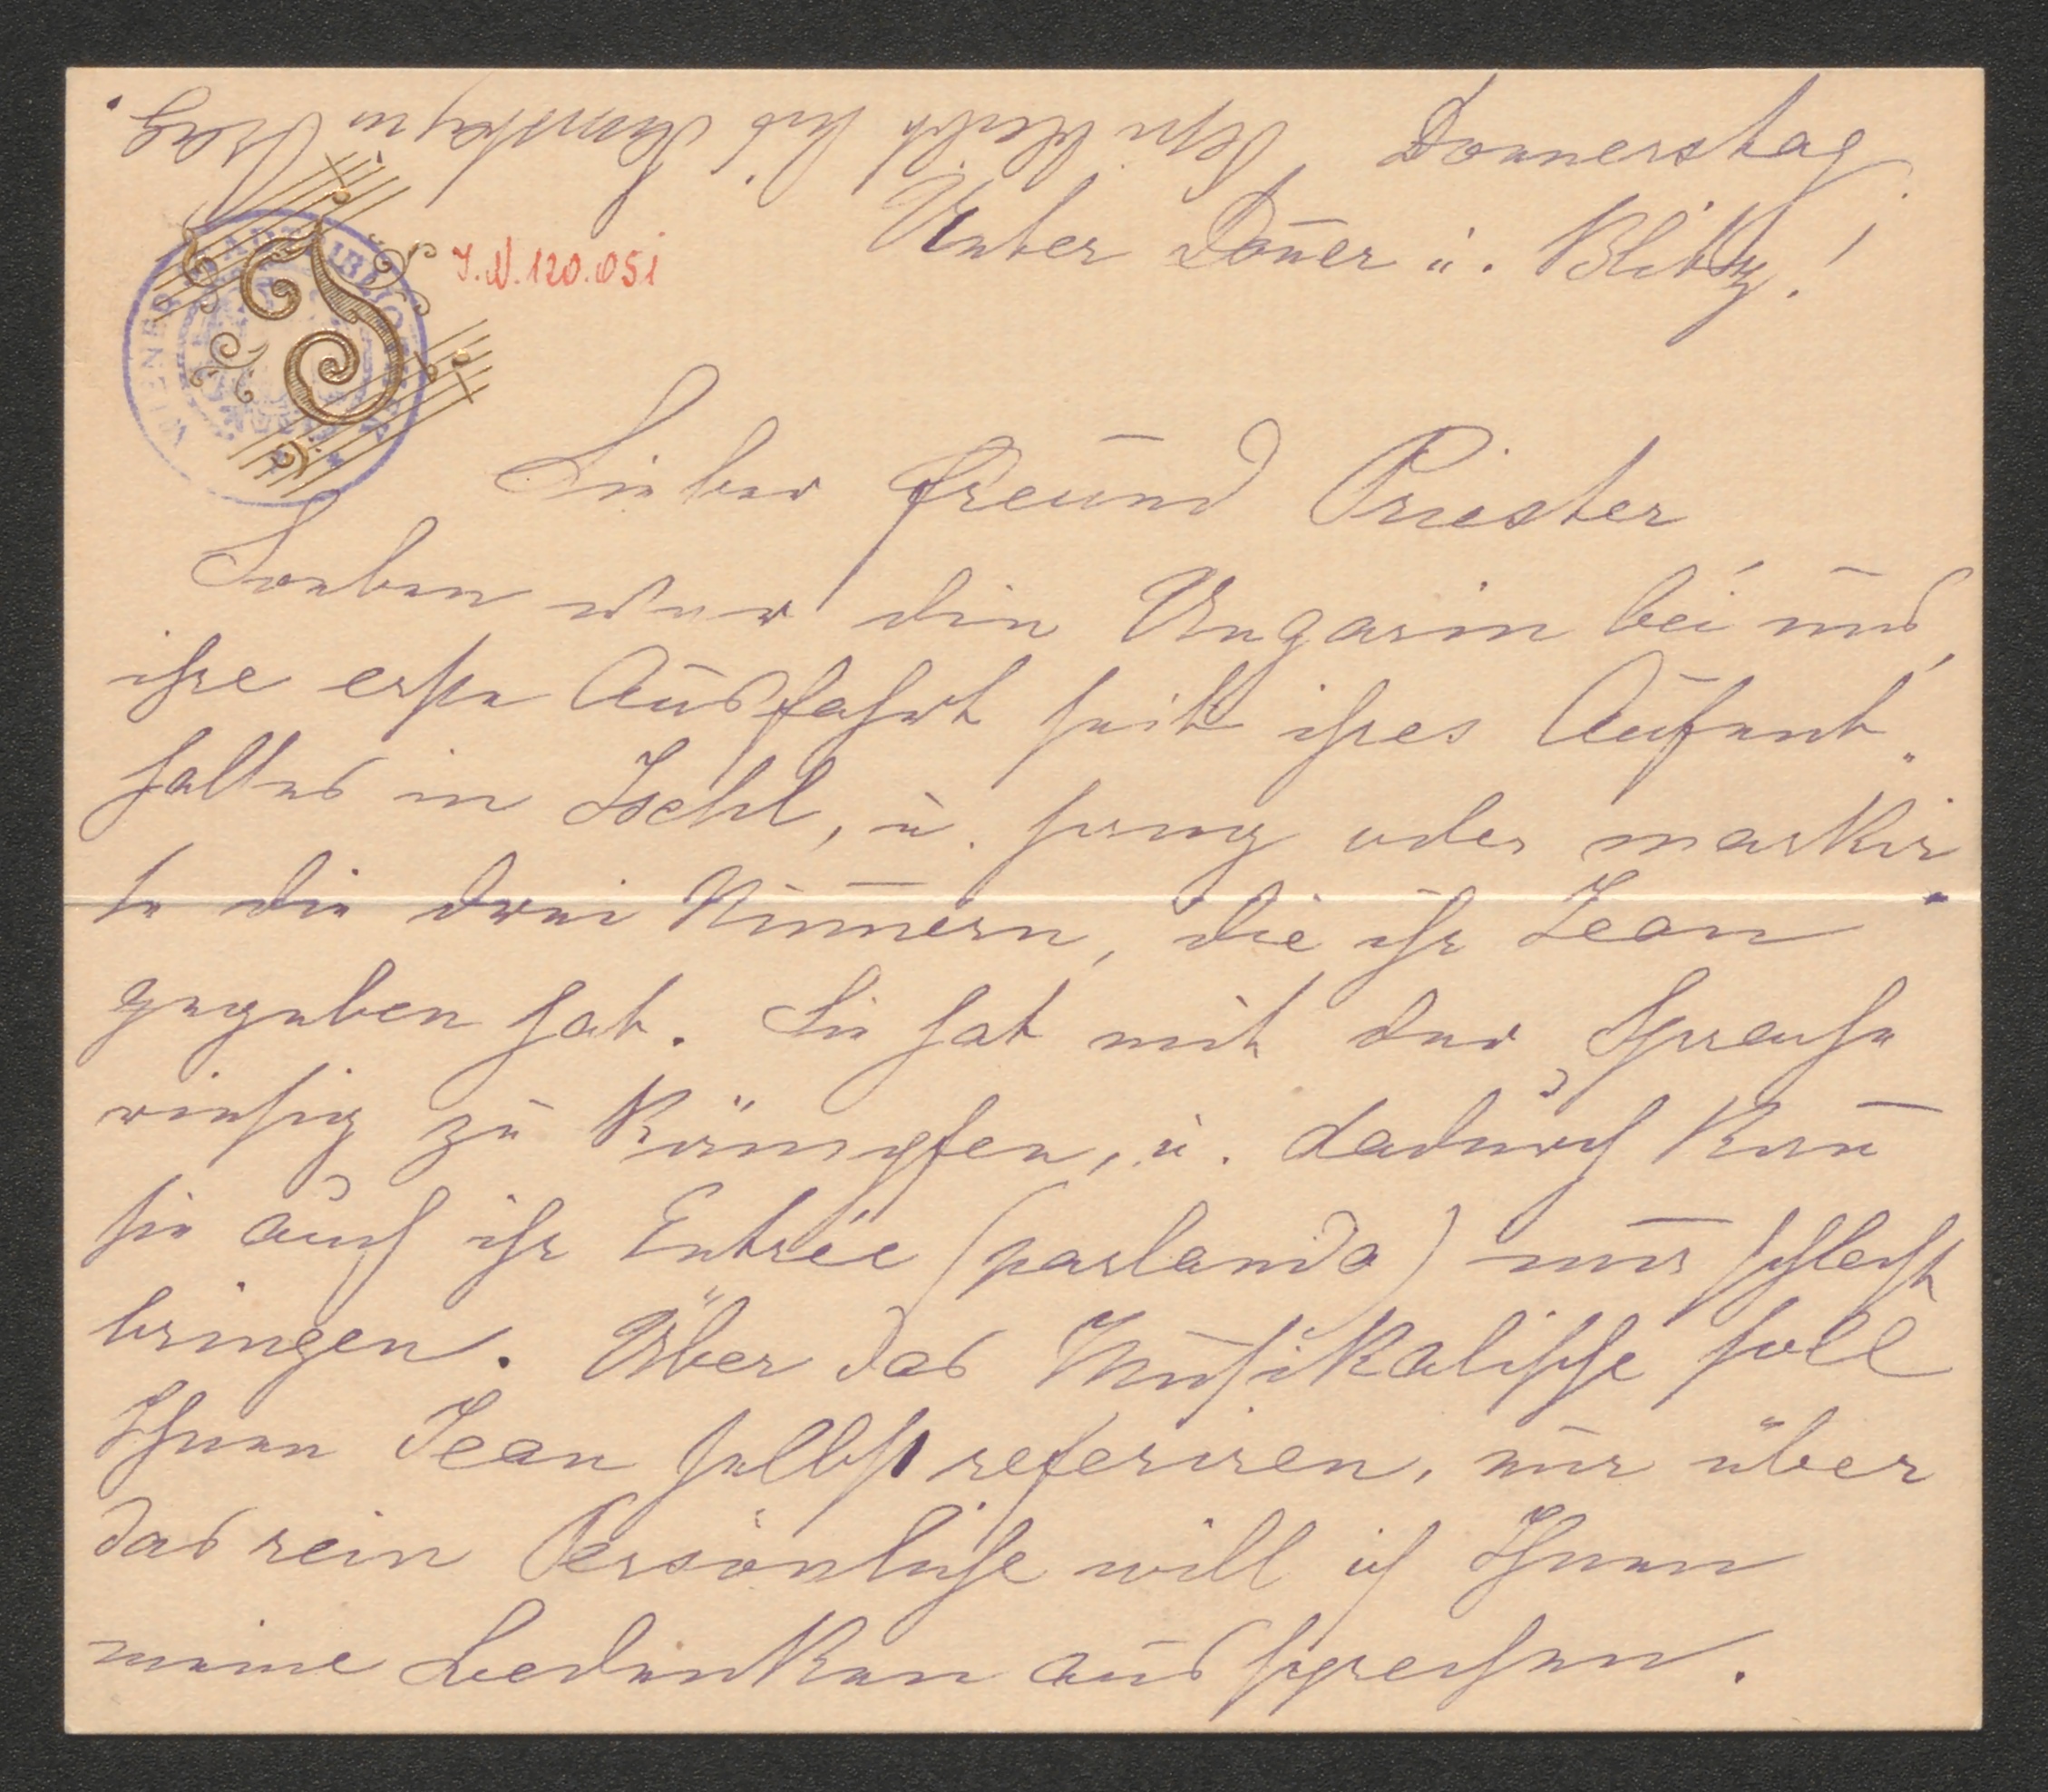 Donnerstag.
Unter Don̄er u. Blitz!
J.N. 120.051
WIENER STADTBIBLIOTHEK
bleibt bis Samstag in Prag.
Lieber Freund Priester
Soeben war die Ungarin bei uns,
ihre erste Ausfahrt seit ihres Aufent-
haltes in Ischl, u. sang oder markir-
te die drei Num̄ern, die ihr Jean
gegeben hat. Sie hat mit der Sprache
riesig zu kämpfen, u. dadurch kan̄
sie auch ihr Entrée (parlando) nur schlecht
bringen. Über das Musikalische soll
Ihnen Jean selbst referiren, nur über
das rein Persönliche will ich Ihnen
meine Bedenken aussprechen.